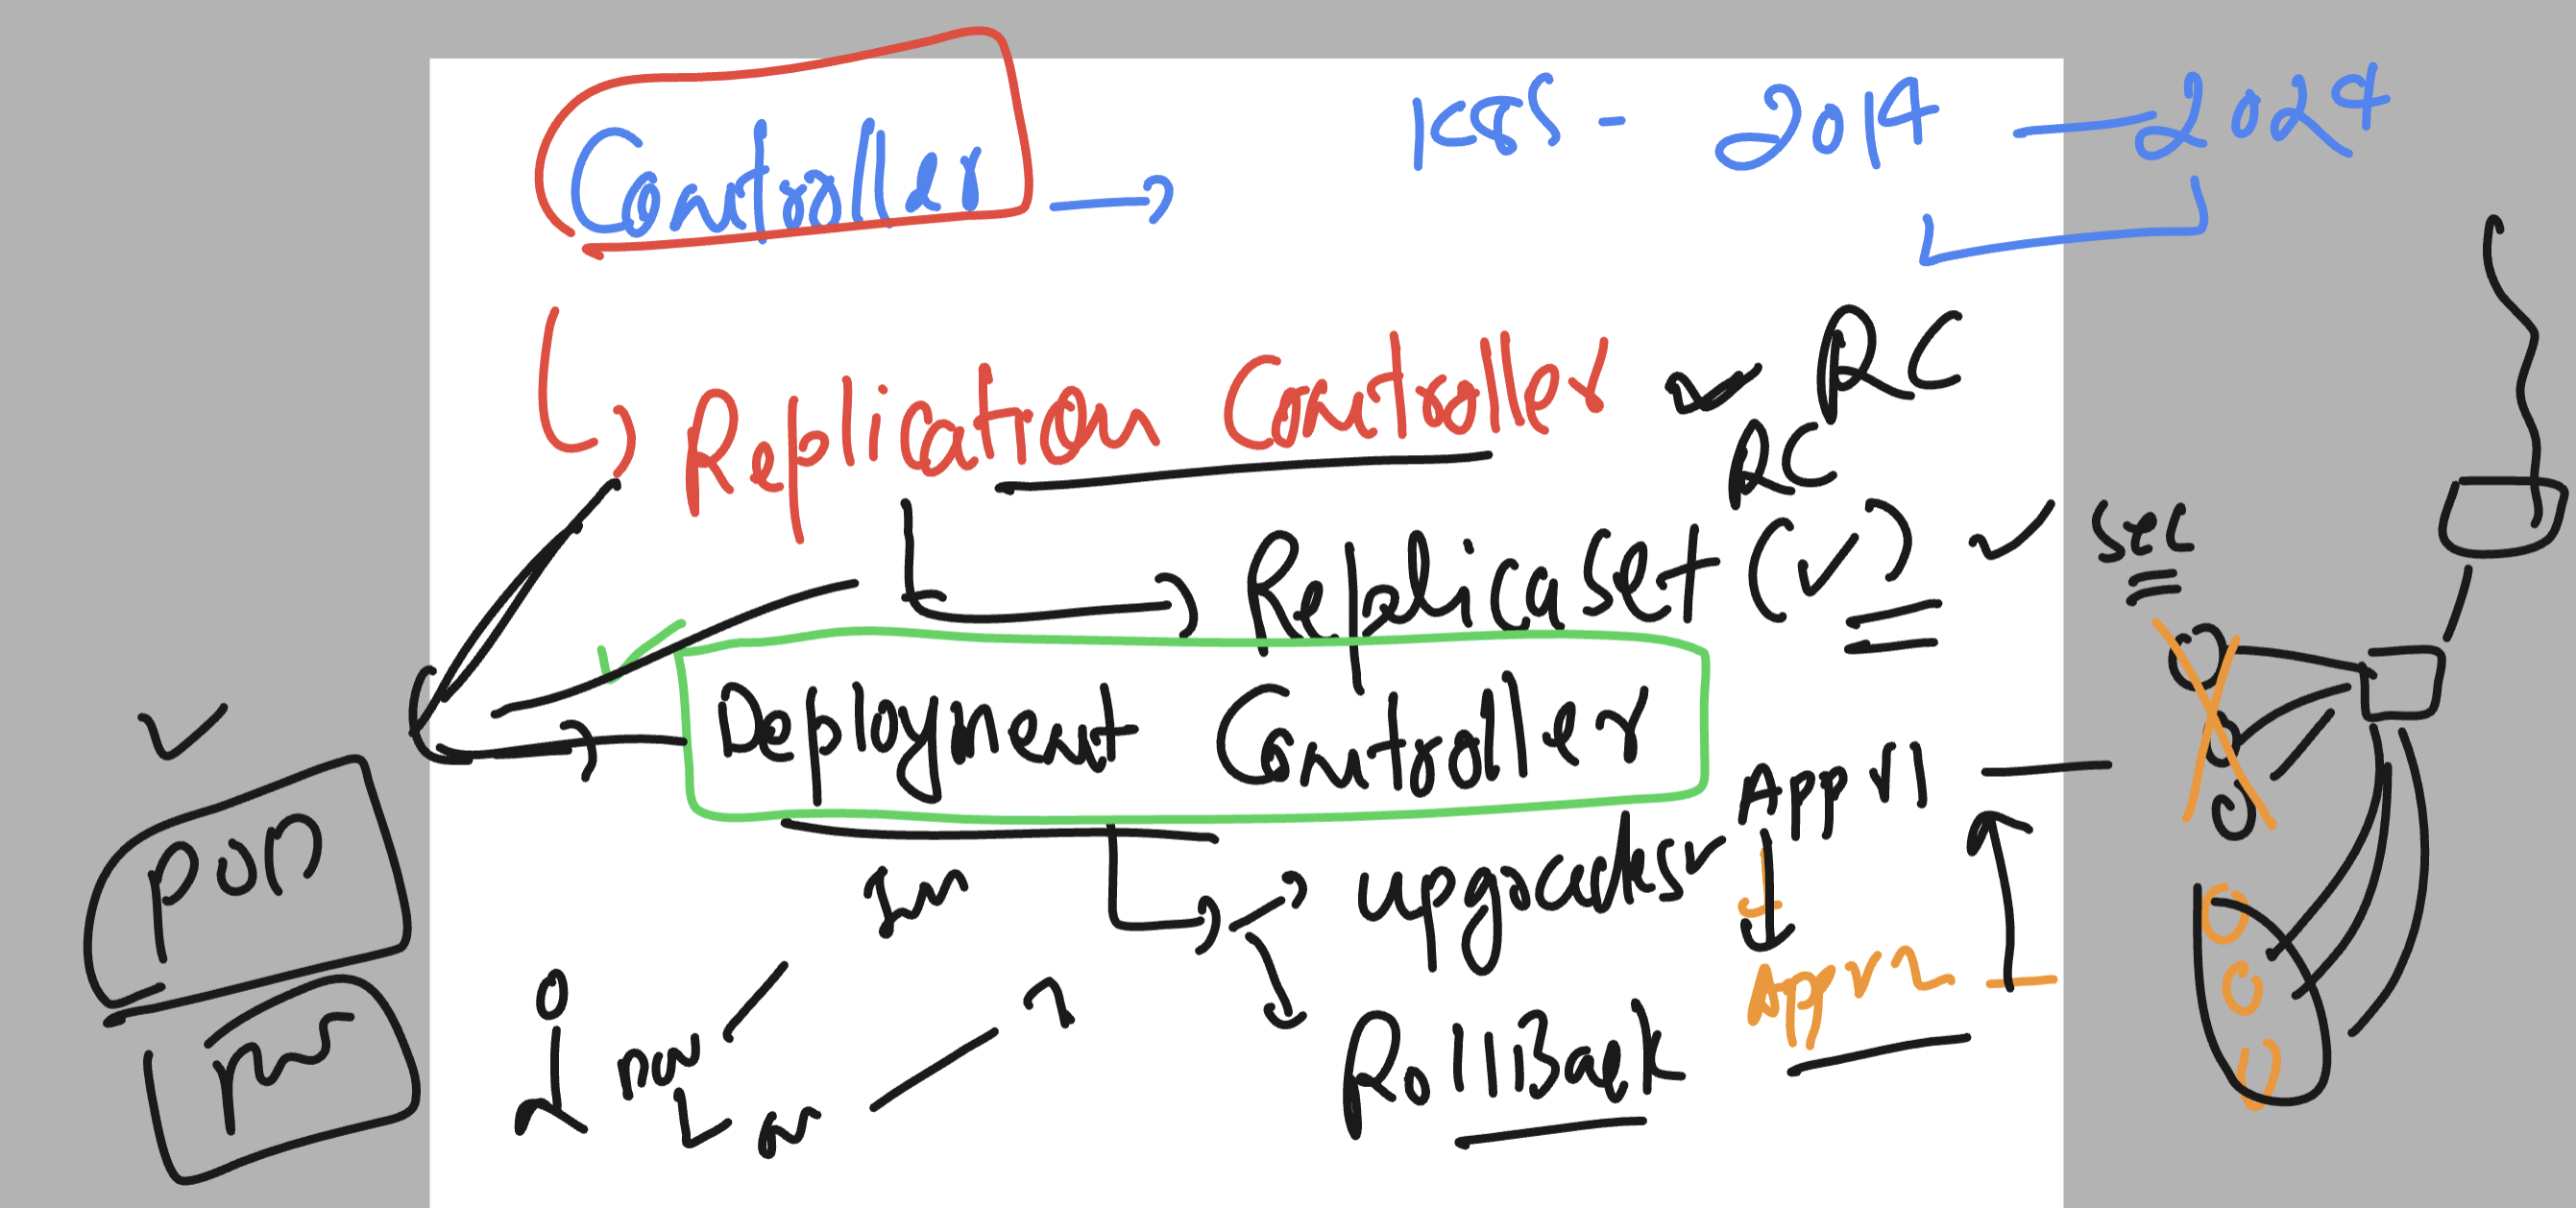 Controller
K8S - 2014 - 2024
Replication Controller RC
RC
Replicaset (✓) ✓
sec
Deployment Controller
App v1
upgrades
App v2
RollBack